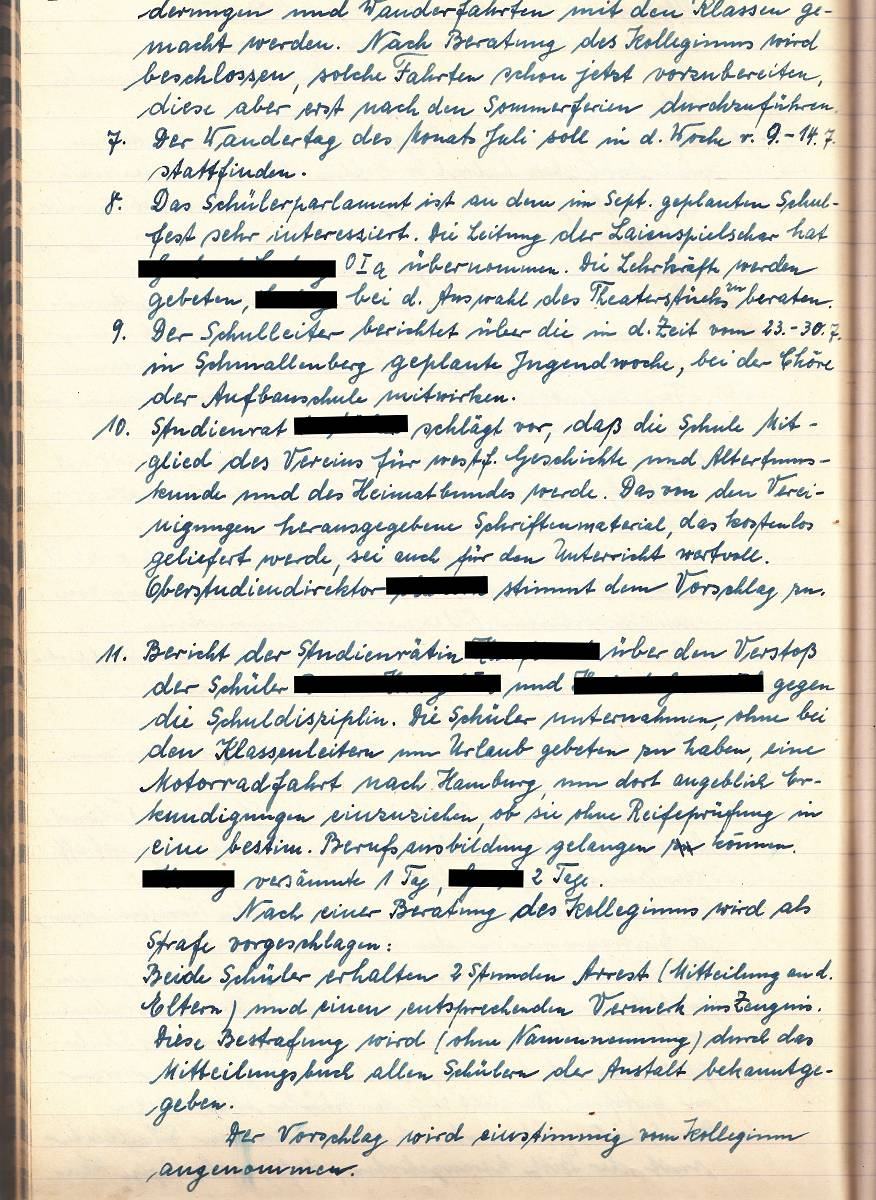 derungen und Wanderfahrten mit den Klassen ge-
macht werden. Nach Beratung des Kollegiums wird
beschlossen, solche Fahrten schon jetzt vorzubereiten,
diese aber erst nach den Sommerferien durchzuführen.
7. Der Wandertag des Monats Juli soll in d. Woche v. 9.-14.7.
stattfinden.
8. Das Schülerparlament ist an dem im Sept. geplanten Schul-
fest sehr interessiert. Die Leitung der Laienspielschar hat
OIa übernommen. Die Lehrkräfte werden
gebeten, bei d. Auswahl des Theaterstücks zu beraten.
9. Der Schulleiter berichtet über die in d. Zeit vom 23.-30.7.
in Schmallenberg geplante Jugendwoche, bei der Chöre
der Aufbauschule mitwirken.
10. Studienrat schlägt vor, daß die Schule Mit-
glied des Vereins für westf. Geschichte und Altertums-
kunde und des Heimatbundes werde. Das von den Verei-
nigungen herausgegebene Schriftenmaterial, das kostenlos
geliefert werde, sei auch für den Unterricht wertvoll.
Oberstudiendirektor stimmt dem Vorschlag zu.
11. Bericht der Studienrätin über den Verstoß
der Schüler und gegen
die Schuldisziplin. Die Schüler unternahmen, ohne bei
den Klassenleitern um Urlaub gebeten zu haben, eine
Motorradfahrt nach Hamburg, um dort angeblich Er-
kundigungen einzuziehen, ob sie ohne Reifeprüfung in
eine bestim. Berufsausbildung gelangen können.
versäumte 1 Tag, 2 Tage.
Nach einer Beratung des Kollegiums wird als
Strafe vorgeschlagen:
Beide Schüler erhalten 2 Stunden Arrest (Mitteilung an d.
Eltern) und einen entsprechenden Vermerk ins Zeugnis.
Diese Bestrafung wird (ohne Namennennung) durch das
Mitteilungsbuch allen Schülern der Anstalt bekanntge-
geben.
Der Vorschlag wird einstimmig vom Kollegium
angenommen.